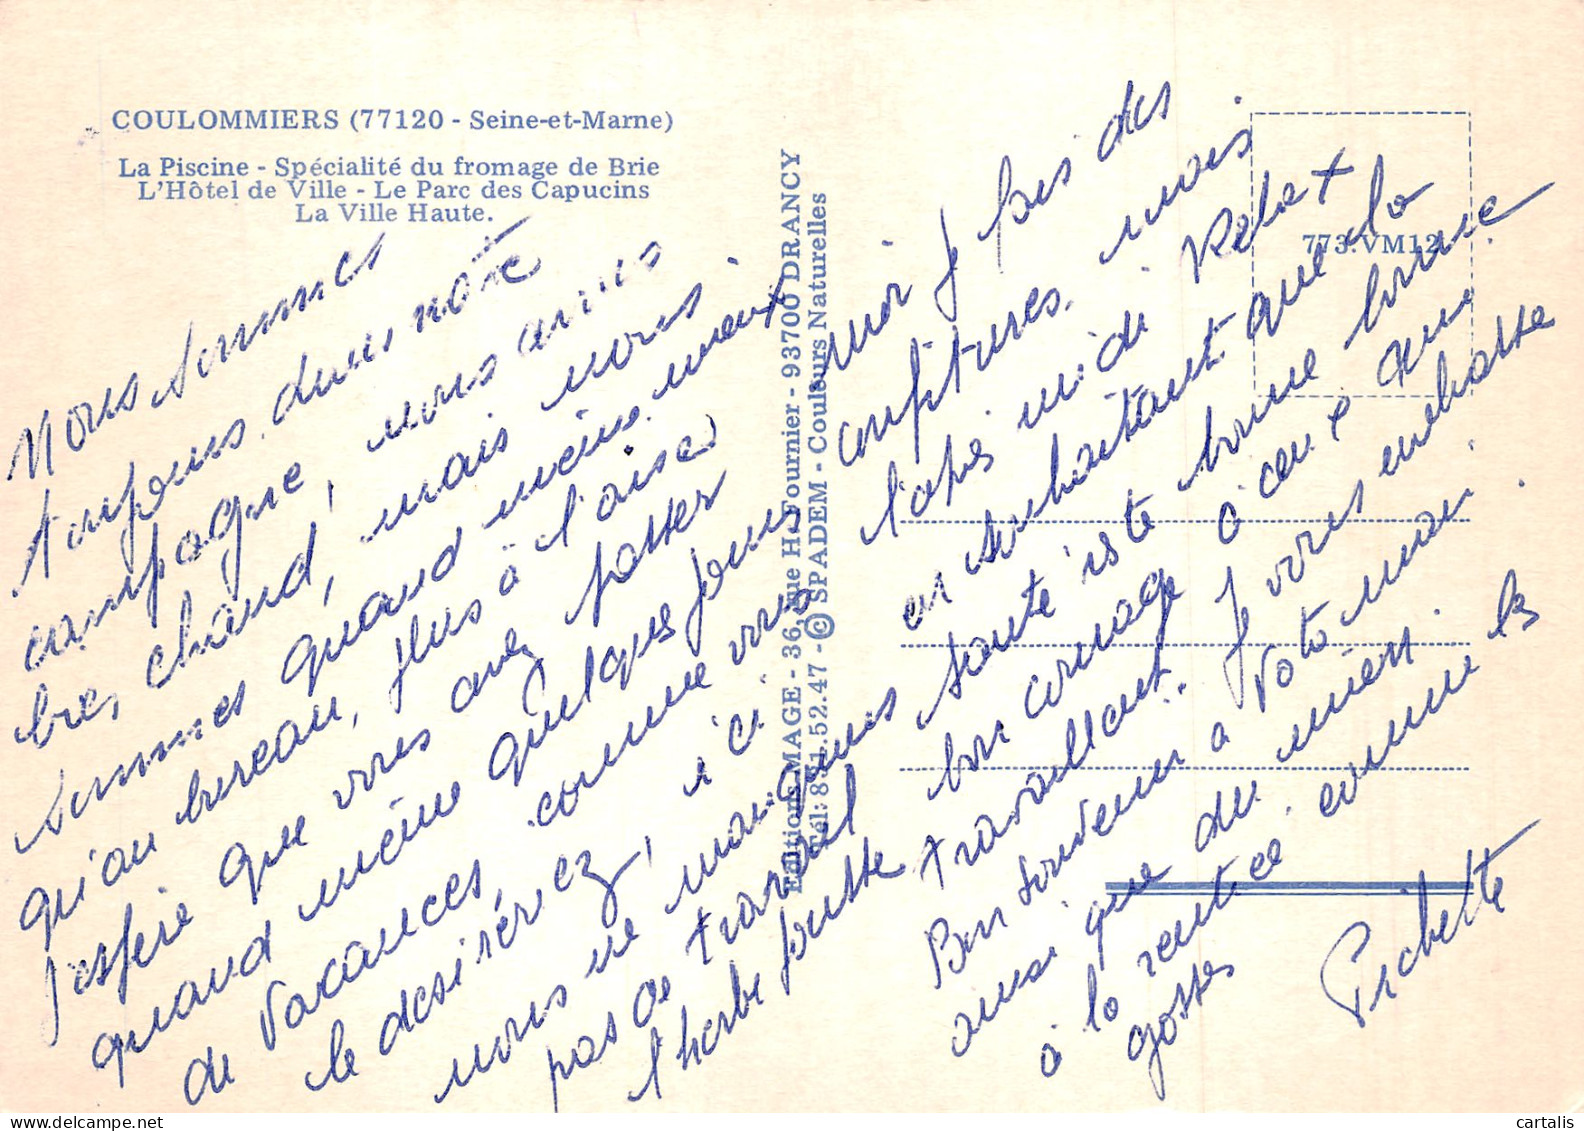 COULOMMIERS (77120 - Seine-et-Marne)
La Piscine - Spécialité du fromage de Brie
L'Hôtel de Ville - Le Parc des Capucins
La Ville Haute.
Nous sommes
toujours dans notre
campagne, nous avons
très chaud, mais nous
sommes quand même mieux
qu'au bureau, plus à l'aise
J'espère que vous avez passer
quand même quelques jours
de vacances comme vous
le désirérez, ici
nous ne manquons
pas de travail
l'herbe pousse
moi je fais des
confitures. mais
l'après midi Relax
en souhaitant que la
santé reste bonne bonne
bon courage à ceux qui
travaillent. Je vous embrasse
Bon souvenir a Votre mari
ainsi que du mien.
à la rentrée comme les
gosses
Pichette
Editions MAGE - 36, rue H. Fournier - 93700 DRANCY
Tél: 831.52.47 - © SPADEM - Couleurs Naturelles
773.VM12
cartalis